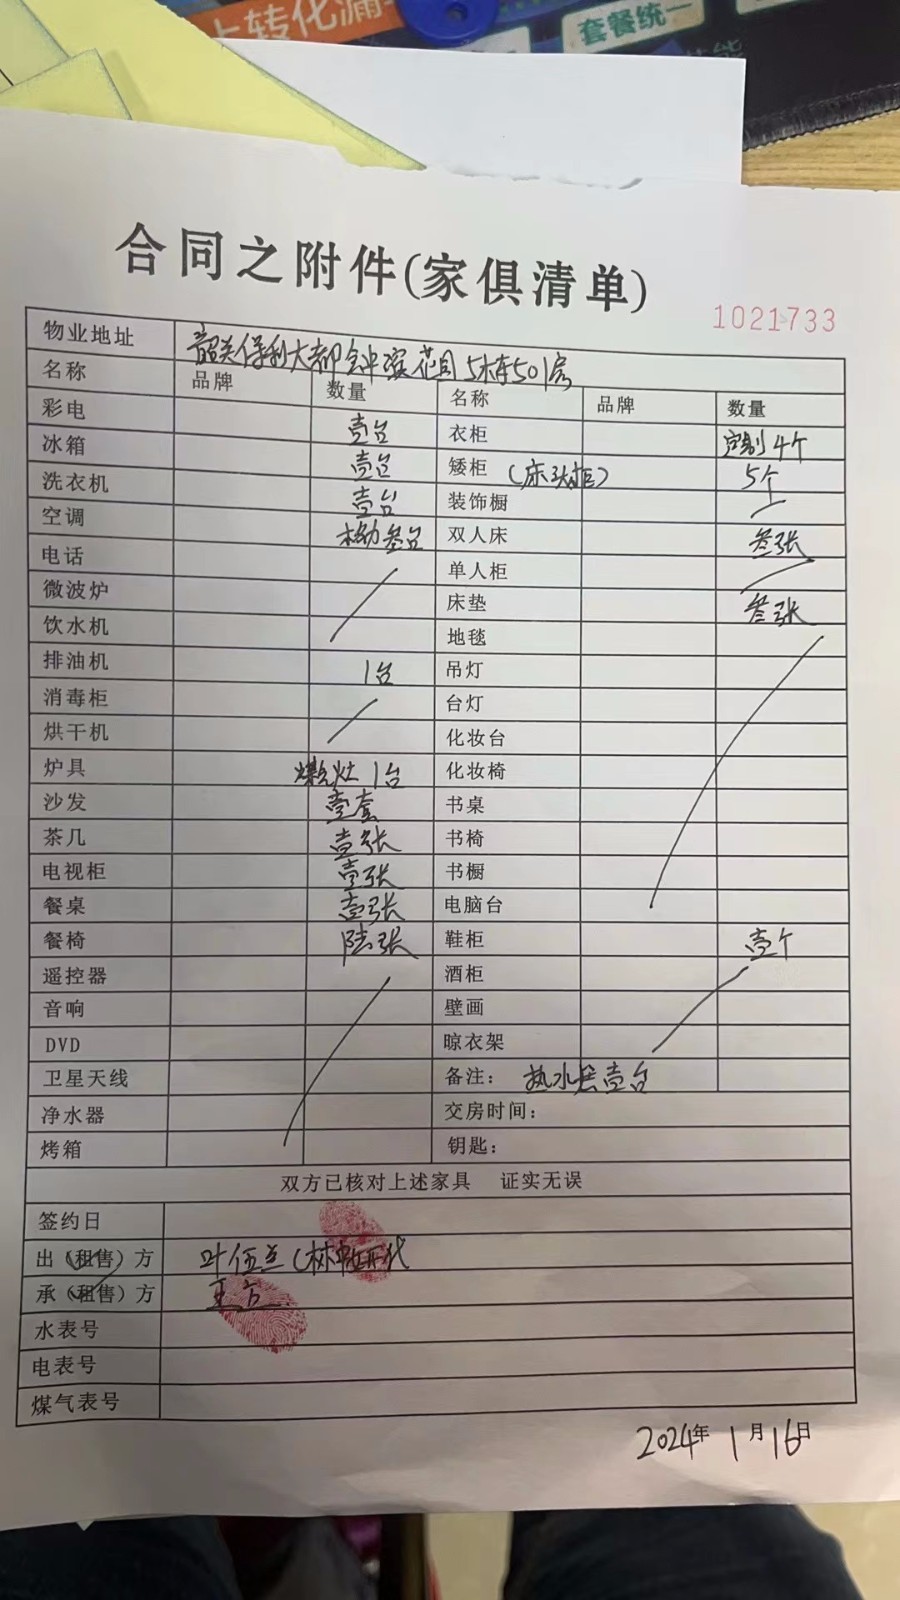 上转化漏
套餐统一
合同之附件(家俱清单)
1021733
物业地址 韶关保利大都 花园5栋501房
名称 品牌 数量 名称 品牌 数量
彩电 壹台 衣柜 定制4个
冰箱 壹台 矮柜 (床头柜) 5个
洗衣机 壹台 装饰橱
空调 叁台 双人床 叁张
电话 单人柜
微波炉 床垫 叁张
饮水机 地毯
排油机 1台 吊灯
消毒柜 台灯
烘干机 化妆台
炉具 燃气灶 1台 化妆椅
沙发 壹套 书桌
茶几 壹张 书椅
电视柜 壹张 书橱
餐桌 壹张 电脑台
餐椅 陆张 鞋柜 壹个
遥控器 酒柜
音响 壁画
DVD 晾衣架
卫星天线 备注: 热水器壹台
净水器 交房时间:
烤箱 钥匙:
双方已核对上述家具 证实无误
签约日
出(租售)方 叶伍兰(林 代
承(租售)方 王方
水表号
电表号
煤气表号
2024年1月16日